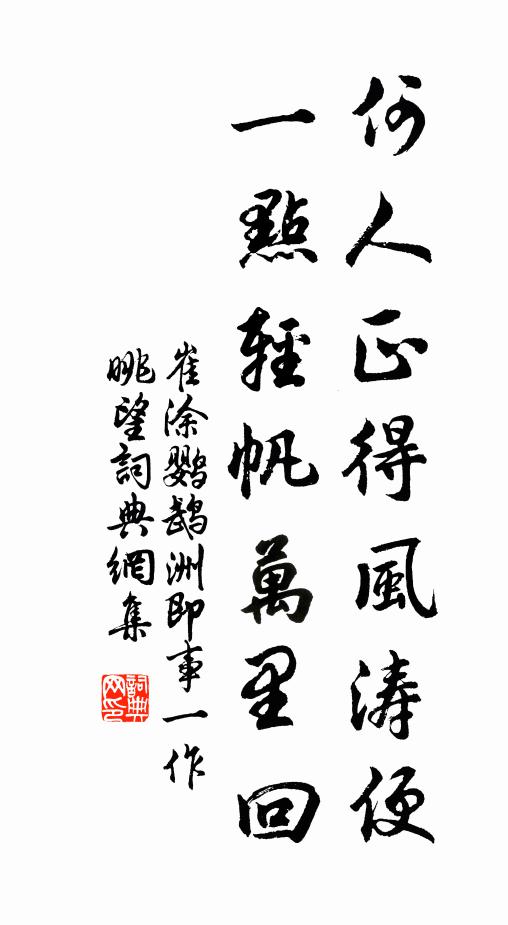 何人正得風濤便
一點輕帆萬里回
崔涂鸚鵡洲即事一作
眺望詞典網集
詞典網印